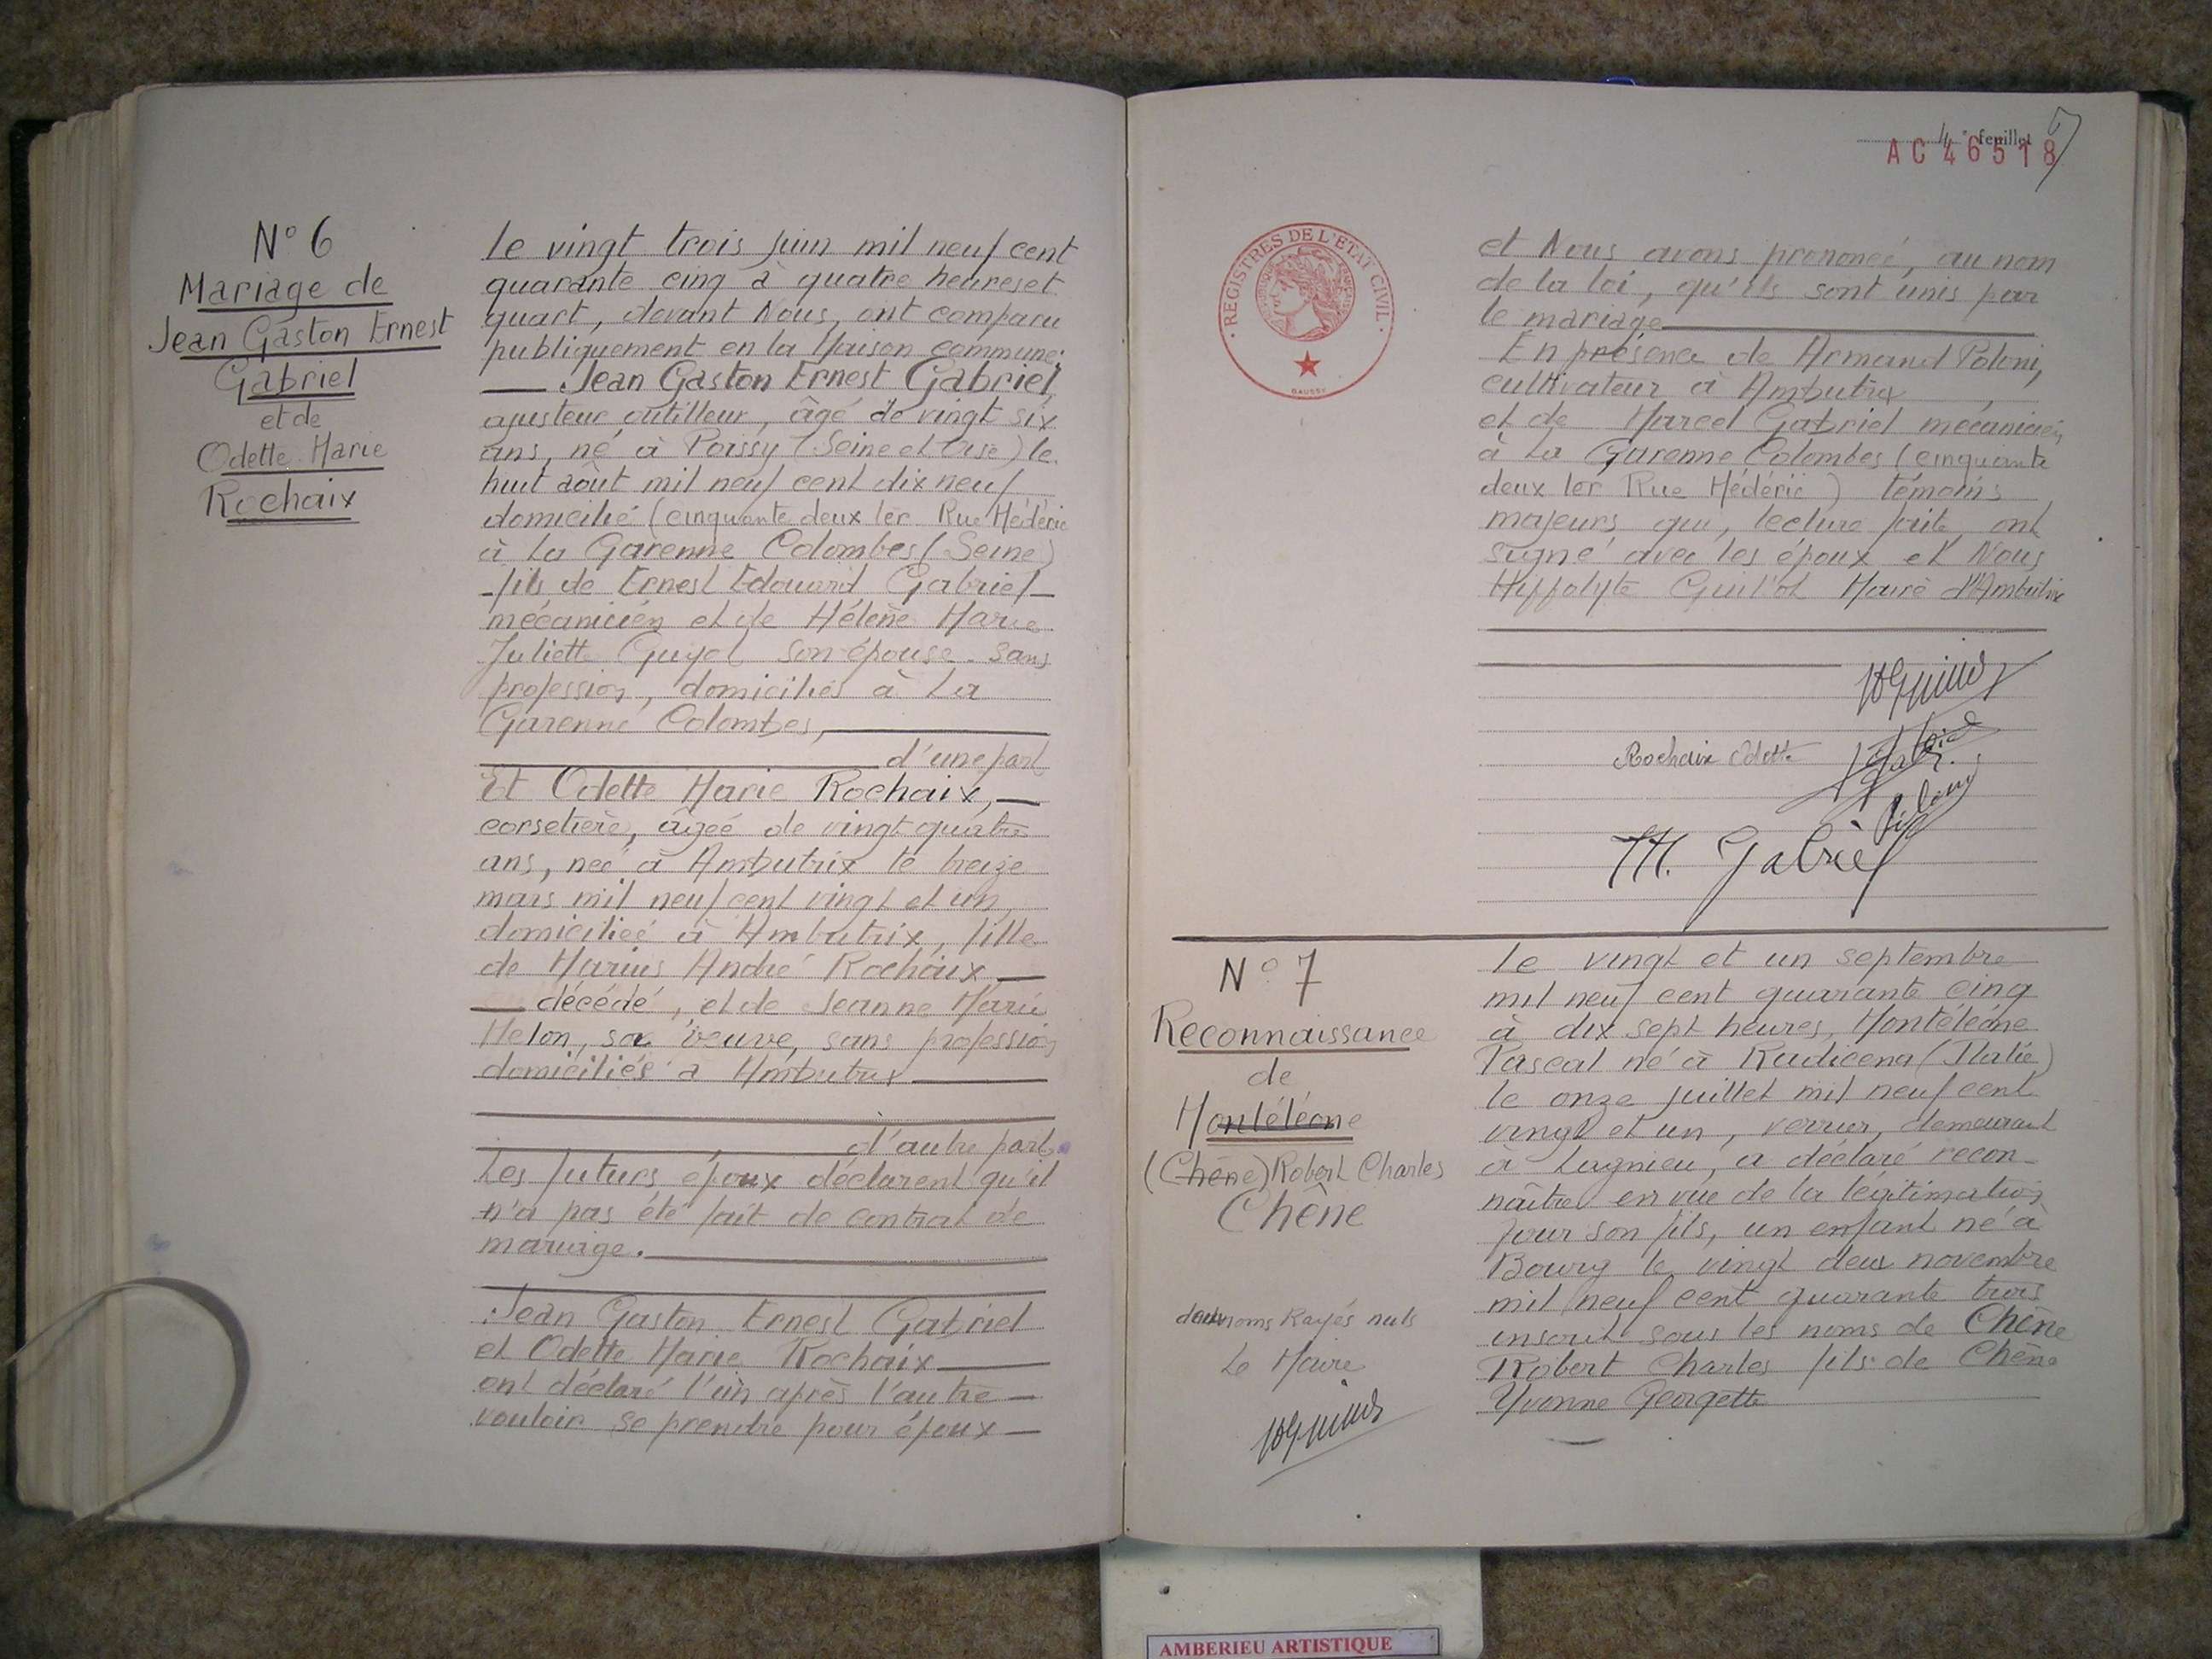 N° 6
Mariage de
Jean Gaston Ernest
Gabriel
et de
Odette Marie
Rochaix
Le vingt trois juin mil neuf cent
quarante cinq à quatre heures et
quart, devant Nous, ont comparu
publiquement en la Maison commune:
Jean Gaston Ernest Gabriel,
ajusteur outilleur, âgé de vingt six
ans, né à Poissy (Seine et Oise) le
huit août mil neuf cent dix neuf
domicilié (cinquante deux ter Rue Médéric
à La Garenne Colombes (Seine)
fils de Ernest Edouard Gabriel
mécanicien et de Hélène Marie
Juliette Guyot son épouse sans
profession, domiciliés à La
Garenne Colombes,
d'une part
Et Odette Marie Rochaix,
corsetière, âgée de vingt quatre
ans, née à Ambutrix le treize
mars mil neuf cent vingt et un,
domiciliée à Ambutrix, fille
de Marius André Rochaix
décédé, et de Jeanne Marie
Melon, sa veuve, sans profession
domiciliés à Ambutrix
d'autre part
Les futurs époux déclarent qu'il
n'a pas été fait de contrat de
mariage.
Jean Gaston Ernest Gabriel
et Odette Marie Rochaix
ont déclaré l'un après l'autre
vouloir se prendre pour époux
4e feuillet 7
AC 46518
REGISTRES DE L'ETAT CIVIL
et Nous avons prononcé, au nom
de la loi, qu'ils sont unis par
le mariage
En présence de Armand Poloni,
cultivateur à Ambutrix
et de Marcel Gabriel mécanicien
à La Garenne Colombes (cinquante
deux ter Rue Médéric) témoins
majeurs qui, lecture faite, ont
signé avec les époux et Nous
Hippolyte Guillot Maire d'Ambutrix
Rochaix Odette
M. Gabriel
N° 7
Reconnaissance
de
Montéléone
(Chêne) Robert Charles
Chêne
deux noms Rayés nuls
Le Maire
Le vingt et un septembre
mil neuf cent quarante cinq
à dix sept heures, Montéléone
Pascal né à Radicena (Italie)
le onze juillet mil neuf cent
vingt et un, verrier, demeurant
à Lagnieu, a déclaré recon-
naître en vue de la légitimation
pour son fils, un enfant né à
Bourg le vingt deux novembre
mil neuf cent quarante trois
inscrit sous les noms de Chêne
Robert Charles fils de Chêne
Yvonne Georgette
AMBERIEU ARTISTIQUE